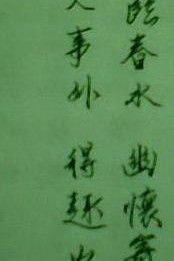 臨春水 幽懷寄
人事外 得趣山